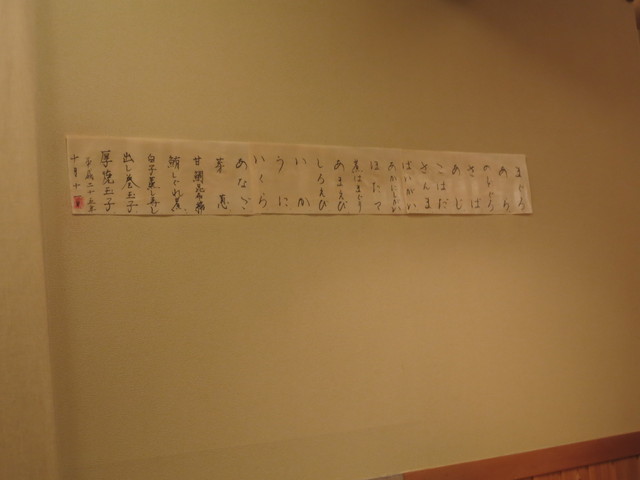 まぐろ
あら
のどぐろ
さば
あじ
こはだ
さんま
ばいがい
あかにしがい
ほたて
煮はまぐり
あまえび
しろえび
いか
うに
いくら
あなご
芽恵
甘鯛
鮪しぐれ煮
白子蒸し寿し
出し巻玉子
厚焼玉子
平成二十五年
十月十